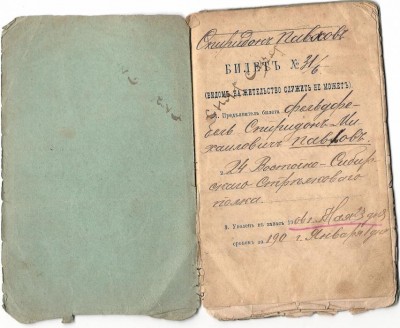 Спиридонъ Павловъ
БИЛЕТЪ № 31/6
(ВИДОМЪ НА ЖИТЕЛЬСТВО СЛУЖИТЬ НЕ МОЖЕТЪ)
1. Предъявитель билета фельдфе-
бель Спиридонъ Ми-
хаиловичъ Павловъ
2. 24 Восточно-Сибир-
скаго Стрѣлковаго
полка
3. Уволенъ въ запасъ 1906 г. Мая 3 дня
срокомъ по 190 г. Января 1 дня